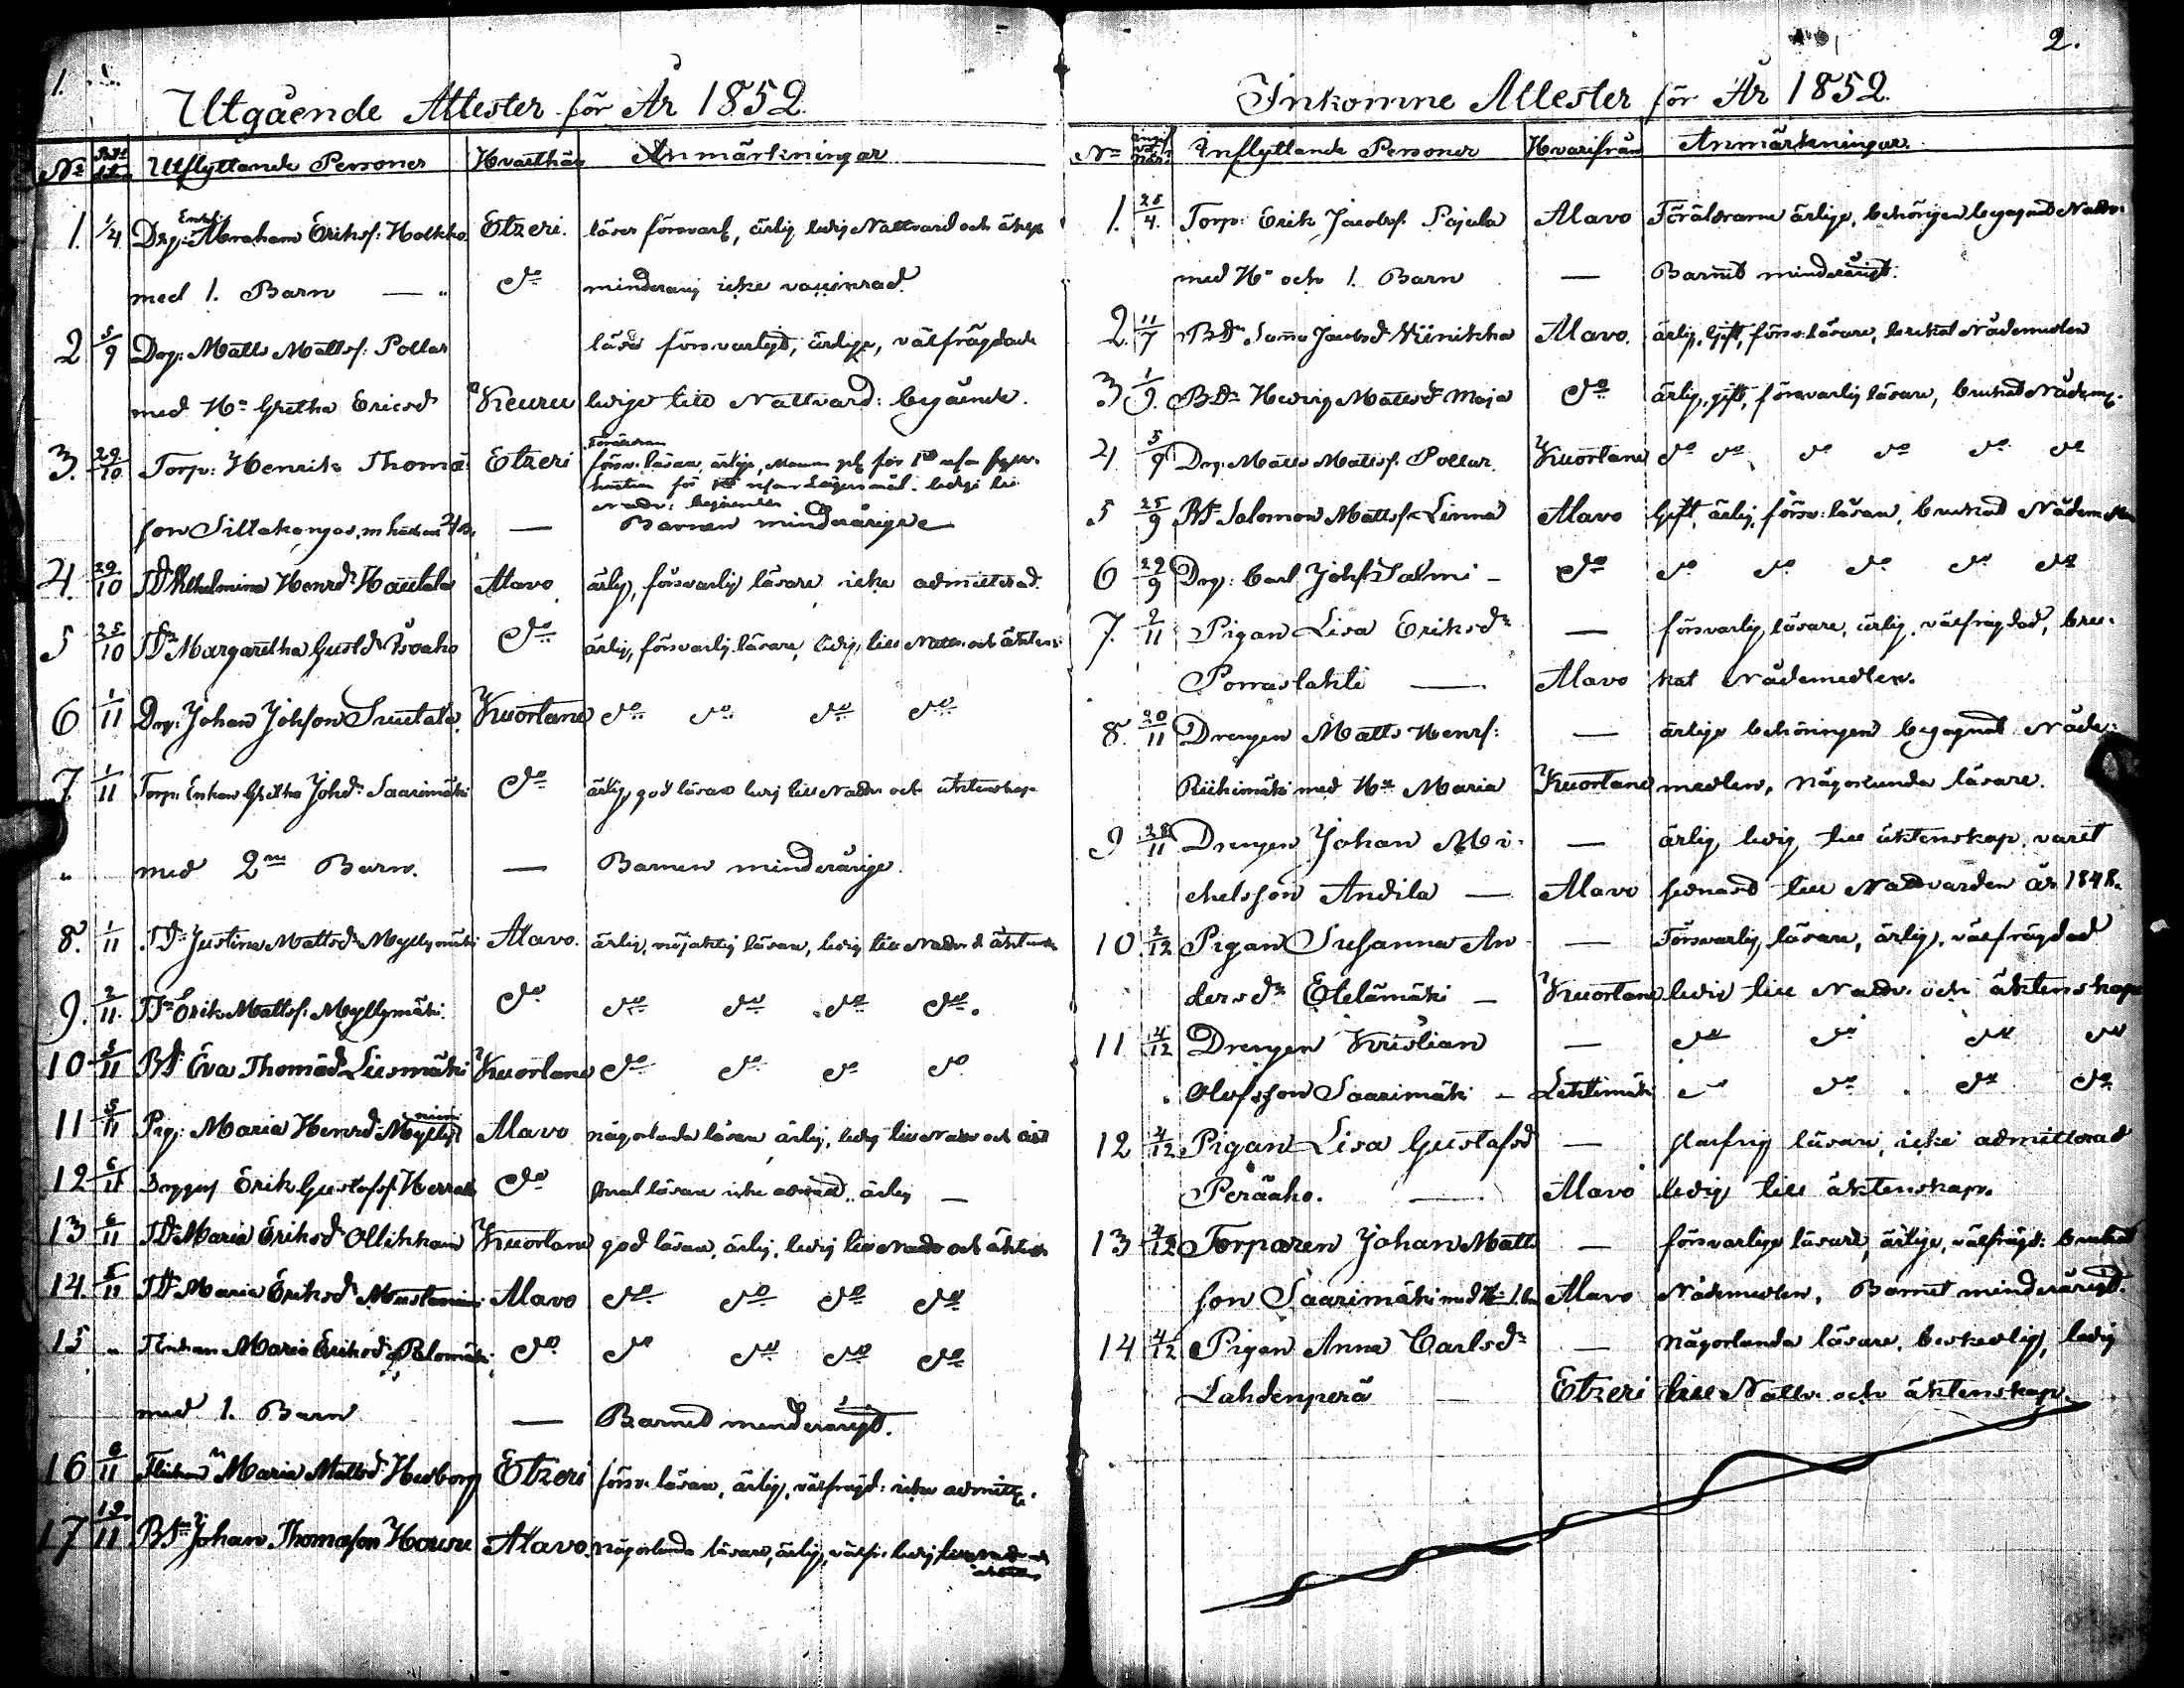 1.
Utgående Attester för År 1852
No Utflyttande Personer Hvarthän Anmärkningar
1. 1/4 Drg: Enkl: Abraham Eriksf: Holkko Etzeri. läser försvarl, ärlig ledig Nattvard och äktsp
med 1. Barn — do minderarig icke vaccinerad
2 5/9 Drg: Matts Mattsf: Pollar läsa försvarligt, ärlige, välfrägdade
med Hu Gretha Ericsd Keuru ledige till Nattvard: begående.
3. 29/10 Torp: Henrik Thomä Etzeri Föräldrarna försv: läsare, ärlige, för 1sta
hustrun för lägersmål. ledige till Nattv: begåendet
son Sillakangas, m hustru — Barnen minderårige
4. 29/10 Wilhelmina Henrd Hautala Alavo ärlig, försvarlig läsare icke admitterad.
5 25/10 Margaretha Gustd Isoaho do ärlig, försvarlig läsare, ledig till Nattv. och äktens:
6 1/11 Drg: Johan Johson Suutala Kuortane do do do do
7. 1/11 Torp: Enkan Gretha Johd Saarimäki do ärlig, god läsare ledig till Nattv. och äktenskap
" med 2ne Barn. — Barnen minderårige.
8. 1/11 Jd: Justina Mattsd Myllymäki Alavo. ärlig, nöjaktig läsare, ledig till Nattv. &
9. 2/11 Erik Mattsf: Myllymäki. do do do do do.
10 5/11 Bd Eva Thomäd Liesmäki Kuortane do do do do
11 5/11 Pig: Maria Henrd Mylly niemi Alavo någorlunda läsare ärlig, ledig till Nattv och äkt
12 6/11 Erik Gustafsf Herrala do läsare icke admitt. ärlig —
13 6/11 Jd Maria Eriksd Ollikkain Kuortane god läsare, ärlig, ledig till Nattv och äktensk
14. 8/11 Jd Maria Eriksd Mustaniemi Alavo do do do do
15 " Enkan Maria Eriksd Palomäki do do do do do
med 1. Barn — Barnet minderårigt.
16 9/11 Flickan Maria Mattsd Hedborg Etzeri försv. läsare, ärlig, välfrägd: icke admitt.
17 19/11 Johan Thomasson Houru Alavo. någorlunda läsare, ärlig, välfr. ledig till Nattv och
äktens
2.
Inkomne Attester för År 1852.
No Inflyttande Personer Hvarifrån Anmärkningar.
1. 25/4. Torp: Erik Jacobsf. Pajula Alavo Föräldrarne ärlige, behörigen begagnad Nattv.
med Hu och 1. Barn — Barnet minderårigt.
2. 11/7 Bdr Sanna Jacobsd Niinikka Alavo. ärlig, Gift, försv: läsare, brukat Nådemedlen
3 1/9. Bdr Hedvig Mattsdr Maja do ärlig, gift, försvarlig läsare, brukad Nådem.
4. 5/9 Drg: Matts Mattsf. Pollar. Kuortane do do do do do do
5 25/9 Salomon Mattsf. Linna Alavo Gift, ärlig, försv: läsare, brukad Nådemedlen
6 29/9 Drg: Carl Johsf Salmi — do do do do do do
7. 2/11 Pigan Lisa Eriksdr — försvarlig läsare, ärlig, välfrägdad, bru-
Porraslahti — Alavo kat Nådemedlen.
8. 20/11 Drengen Matts Henrs: — ärlige behörigen begagnat Nåde-
Riihimäki med Hu Maria Kuortane medlen, någorlunda läsare.
9 28/11 Drengen Johan Mi- — ärlig, ledig till äktenskap, varit
chelsson Andila — Alavo sednast till Nattvarden år 1848.
10. 2/12 Pigan Susanna An- — Försvarlig läsare, ärlig, välfrägdad
dersdr Etelämäki — Kuortane ledig till Nattv. och äktenskap
11 4/12 Drengen Kristian — do do do do
Olofsson Saarimäki — Lehtimäki do do do do
12 4/12 Pigan Lisa Gustafsd — slarfvig läsare, icke admitterad
Peräaho. — Alavo ledig till äktenskap.
13 4/12 Torparen Johan Matts — försvarlige läsare, ärlige, välfrägd: brukat
son Saarimäki med Hu 1. bn Alavo Nådemedlen, Barnet minderårigt.
14 4/12 Pigan Anna Carlsdr — någorlunda läsare, beskedlig, ledig
Lahdenperä — Etzeri till Nattv. och äktenskap.